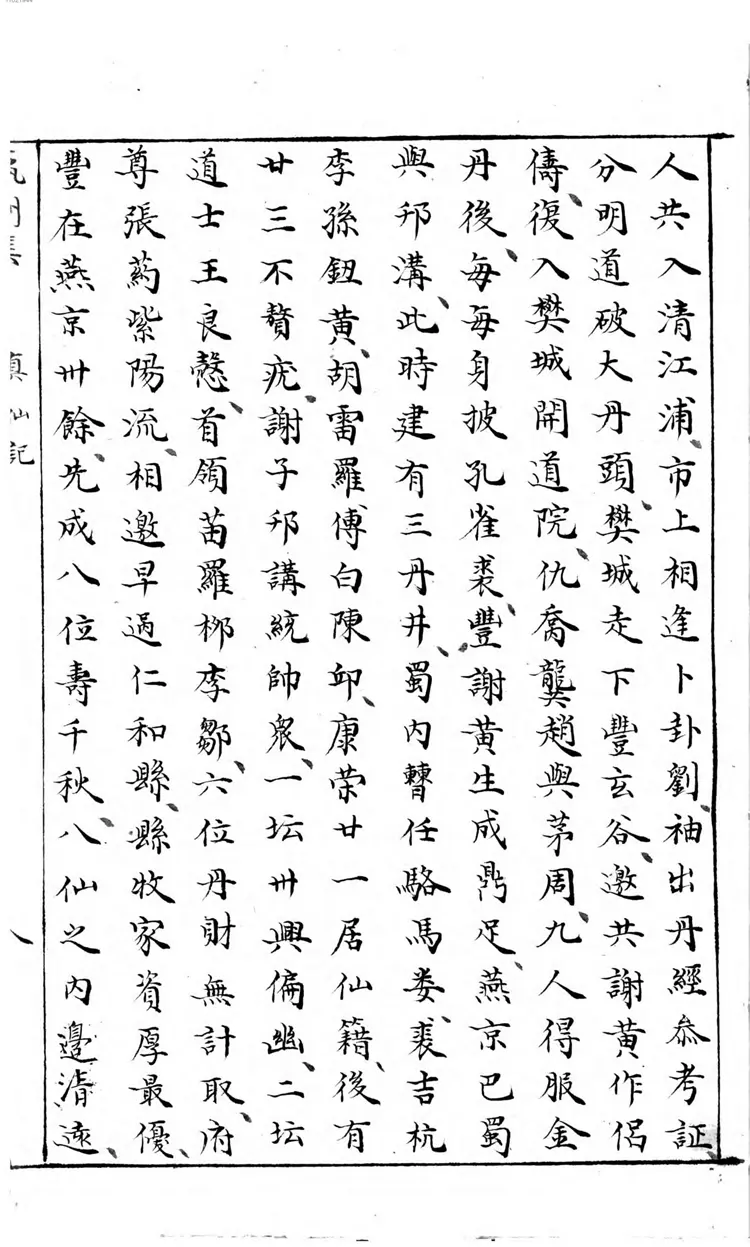 人共入清江浦、市上相逢卜卦劉、袖出丹經叅考証、
分明道破大丹頭、樊城走下豐玄谷、邀共謝黄作侶
儔、復入樊城開道院、仇喬龔趙與茅周、九人得服金
丹後、每每身披孔雀裘、豐謝黄生成鼎足、燕京巴蜀
與邗溝、此時建有三丹井、蜀内瞽任駱馬娄、裴吉杭
李孫鈕黄、胡雷羅傅白陳邱、康荣廿一居仙籍、後有
廿三不贅疣、謝子邗講統帥衆、一坛卅興偏幽、二坛
道士王良慤、首領苗羅栁李鄒、六位丹財無計取、府
尊張葯紫陽流、相邀早過仁和縣、縣牧家資厚最優、
豐在燕京卅餘、先成八位壽千秋、八仙之内邊清遠、
真仙記